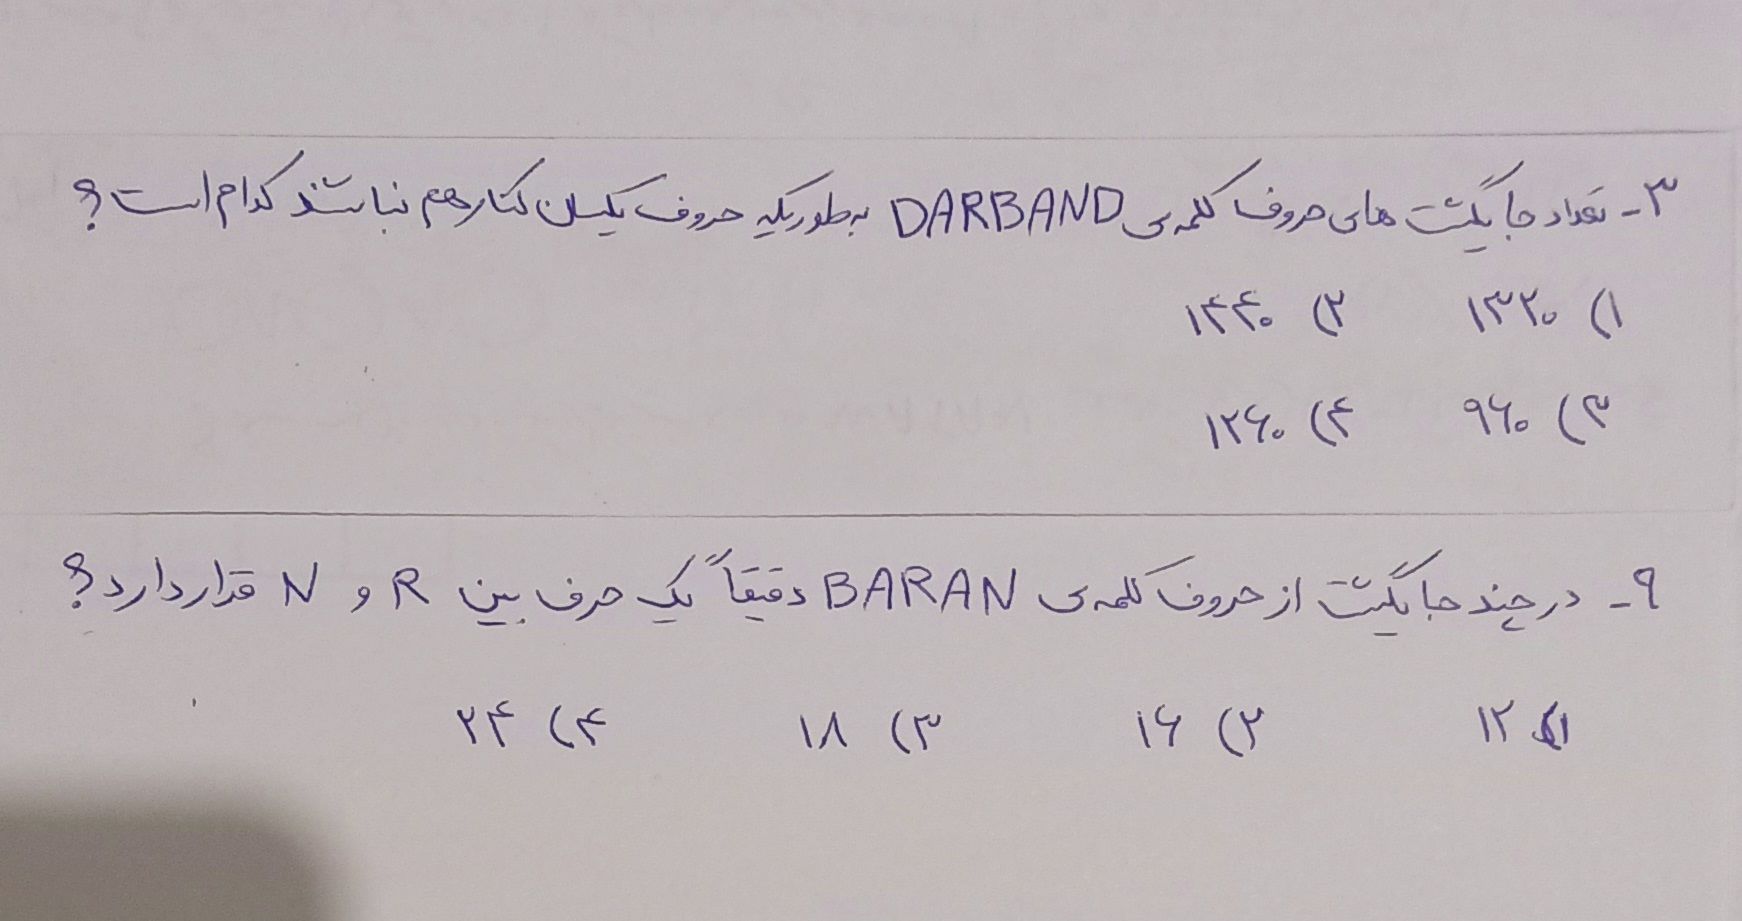 ۳- تعداد جایگشت های حروف کلمه ی DARBAND به طوریکه حروف یکسان کنار هم نباشند کدام است؟
۱) ۱۳۲۰ ۲) ۱۴۴۰
۳) ۹۶۰ ۴) ۱۲۶۰
۹- در چند جایگشت از حروف کلمه ی BARAN دقیقاً یک حرف بین R و N قرار دارد؟
۱) ۱۲ ۲) ۱۶ ۳) ۱۸ ۴) ۲۴